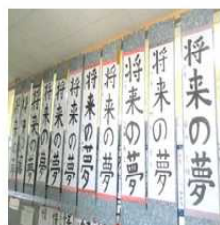 将来の夢
将来の夢
将来の夢
将来の夢
将来の夢
将来の夢
将来の夢
将来の夢
将来の夢